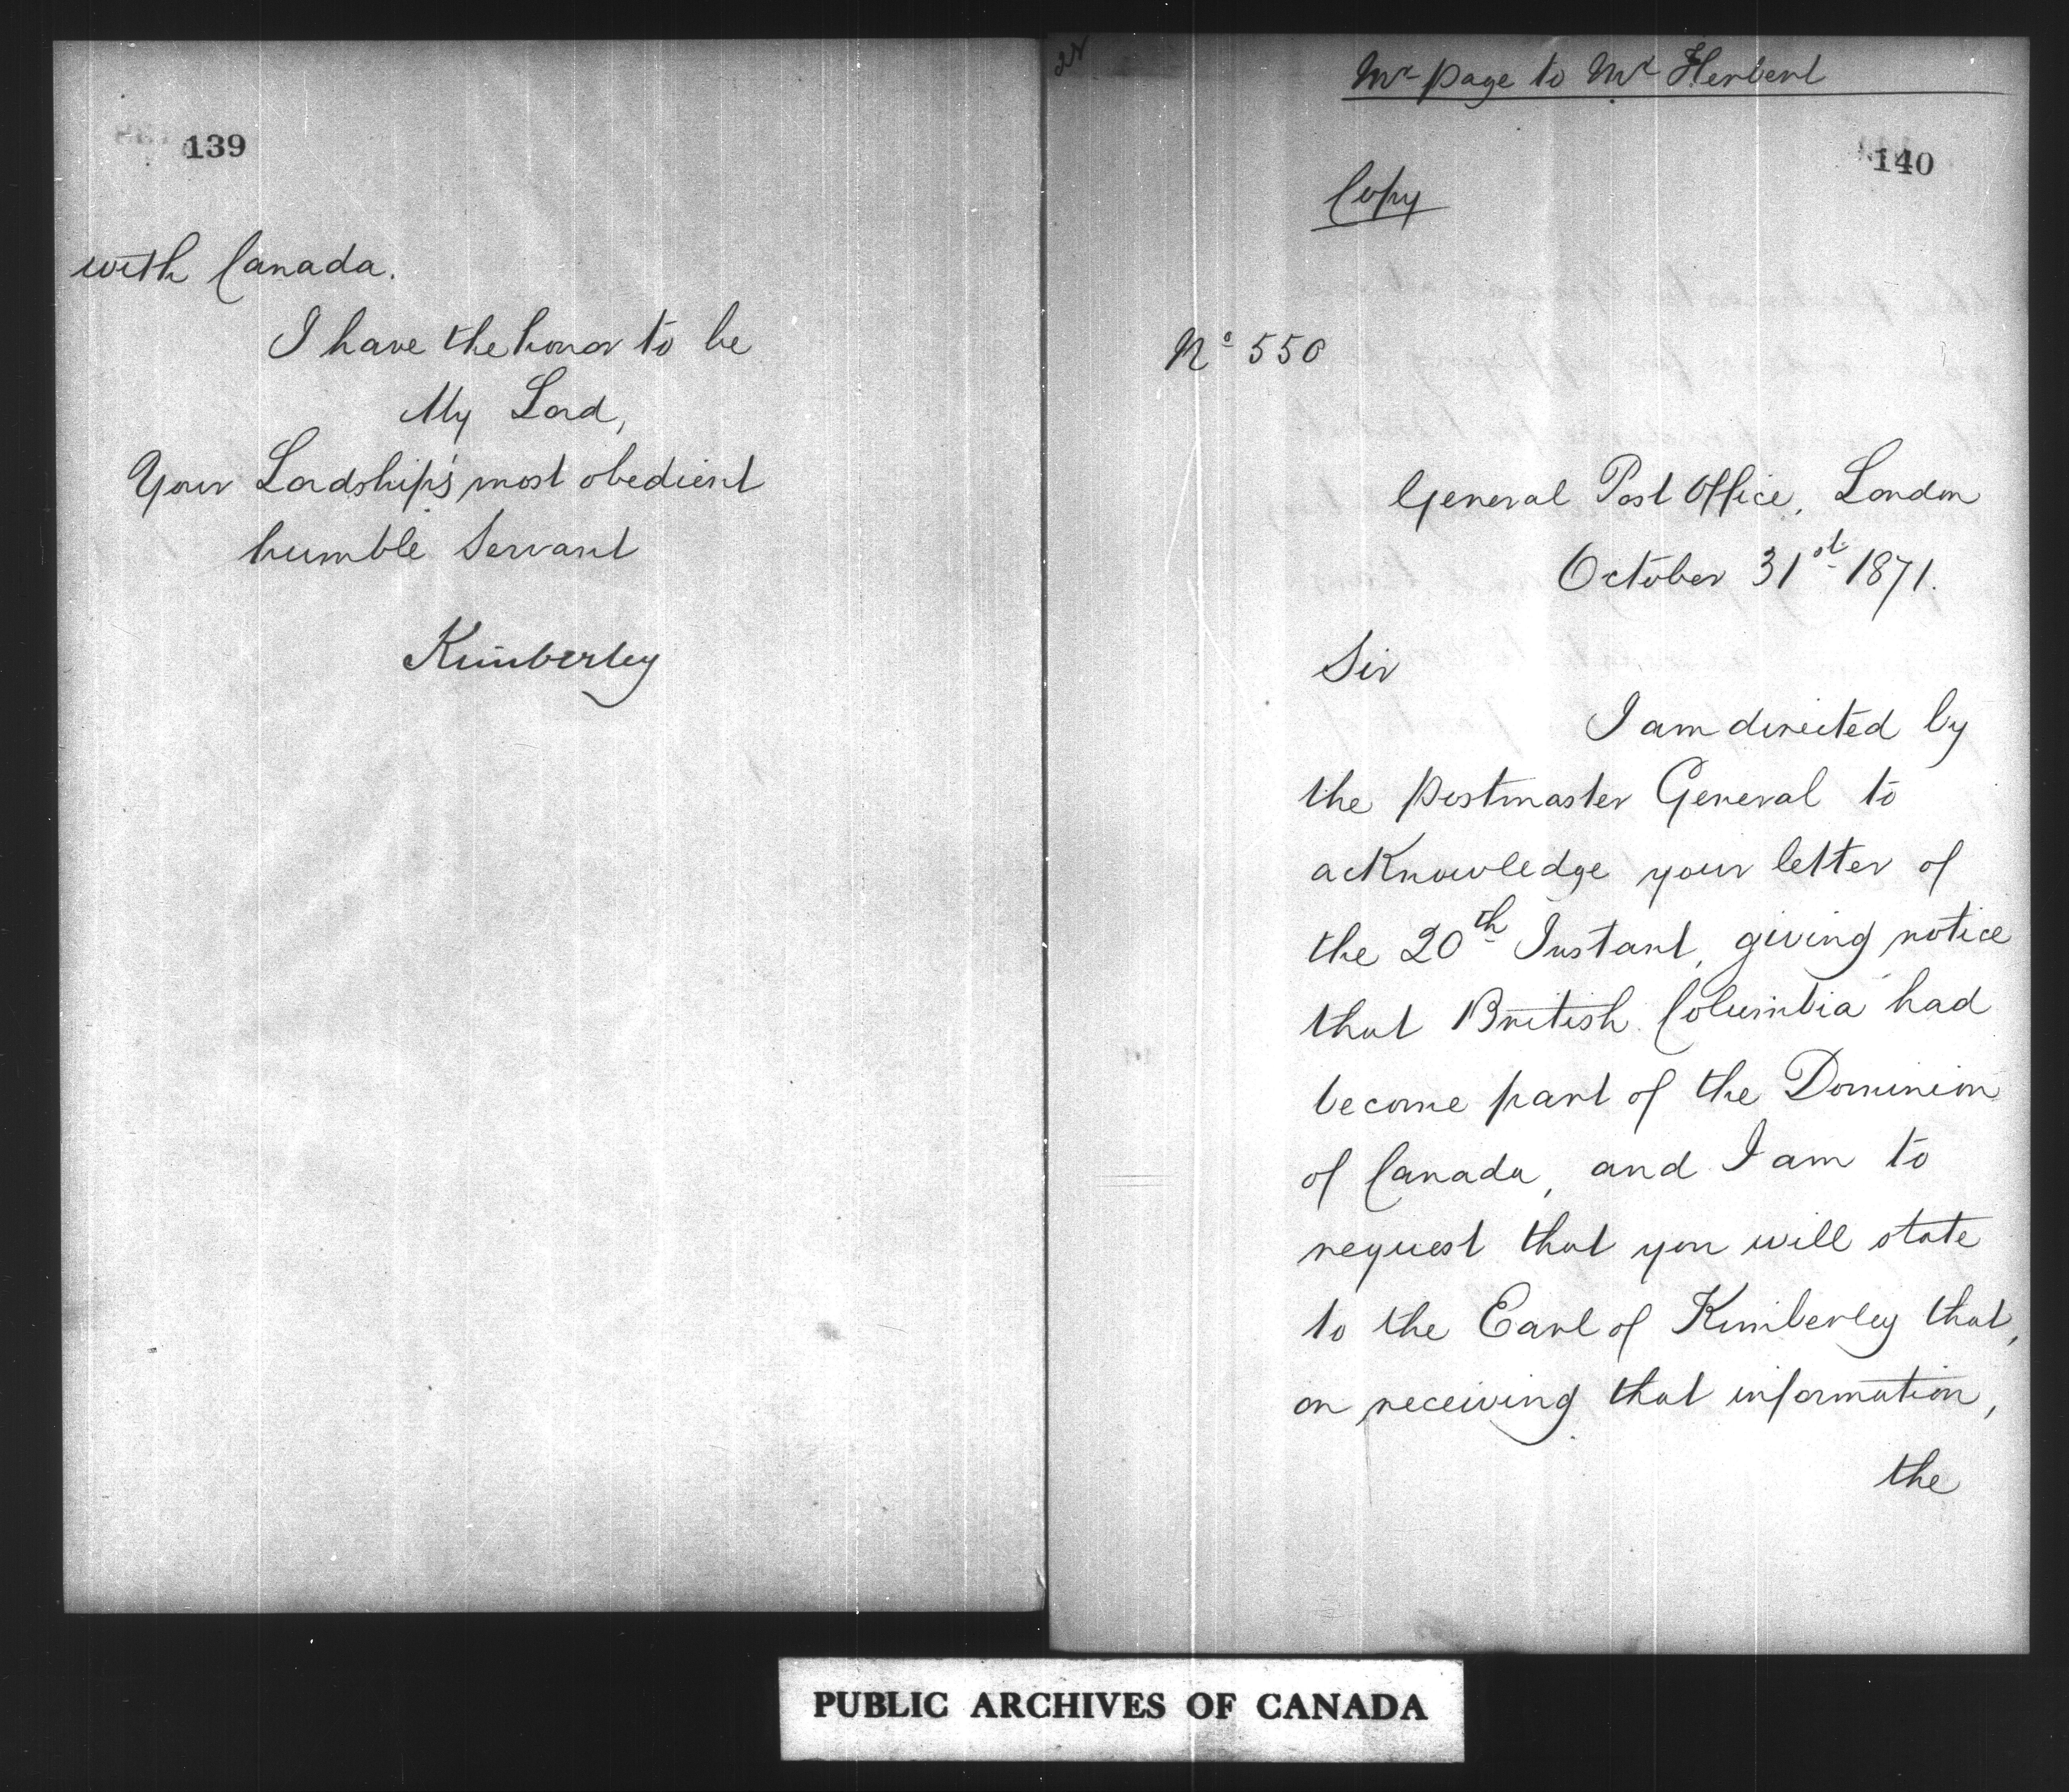 139
with Canada.
I have the honor to be
My Lord,
Your Lordship's most obedient
humble Servant
Kimberley
Mr Page to Mr Herbert
140
Copy
No 550
General Post Office, London
October 31st 1871.
Sir
I am directed by
the Postmaster General to
acknowledge your letter of
the 20th Instant, giving notice
that British Columbia had
become part of the Dominion
of Canada, and I am to
request that you will state
to the Earl of Kimberley that,
on receiving that information,
the
PUBLIC ARCHIVES OF CANADA